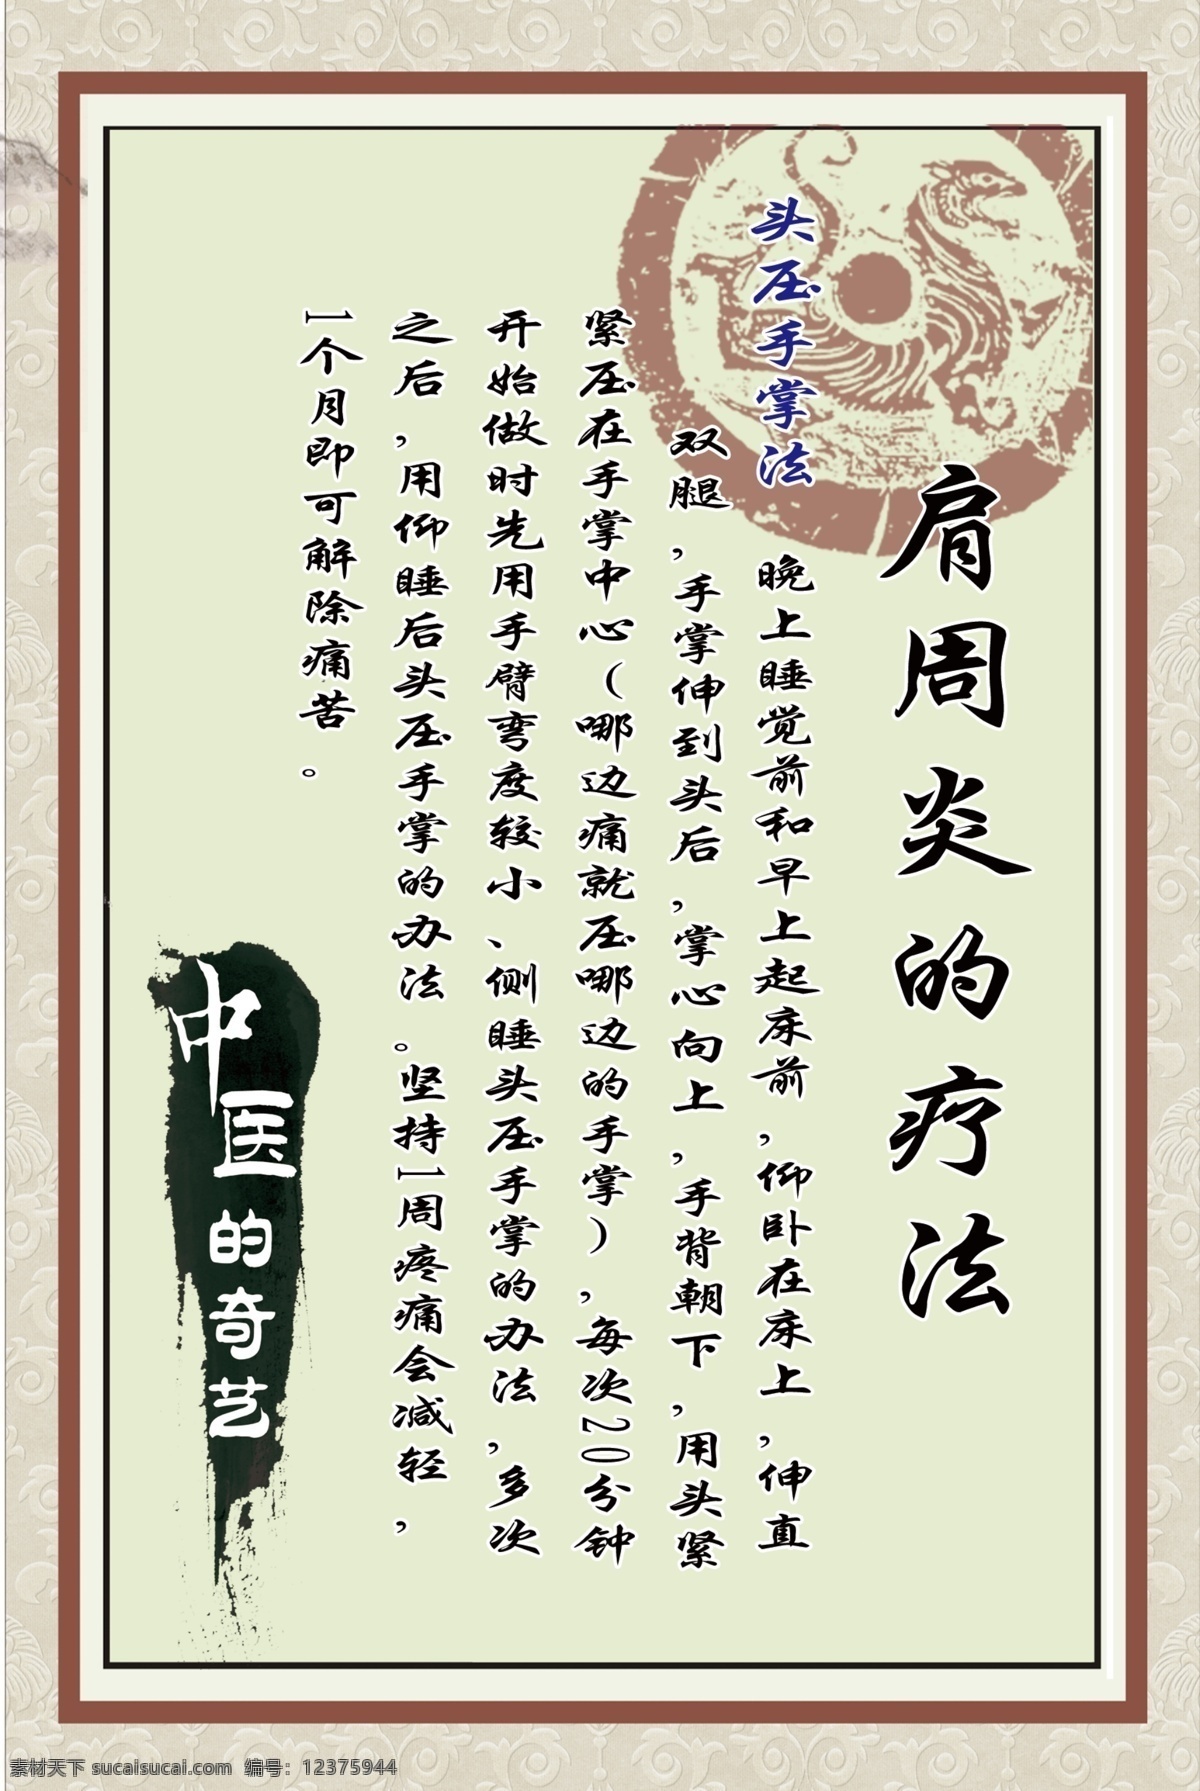 肩周炎的疗法
头压手掌法
晚上睡觉前和早上起床前，仰卧在床上，伸直
双腿，手掌伸到头后，掌心向上，手背朝下，用头紧
紧压在手掌中心（哪边痛就压哪边的手掌），每次20分钟
开始做时先用手臂弯度较小、侧睡头压手掌的办法，多次
之后，用仰睡后头压手掌的办法。坚持1周疼痛会减轻，
1个月即可解除痛苦。
中医的奇艺
素材天下 sucaisucai.com 编号：12375944